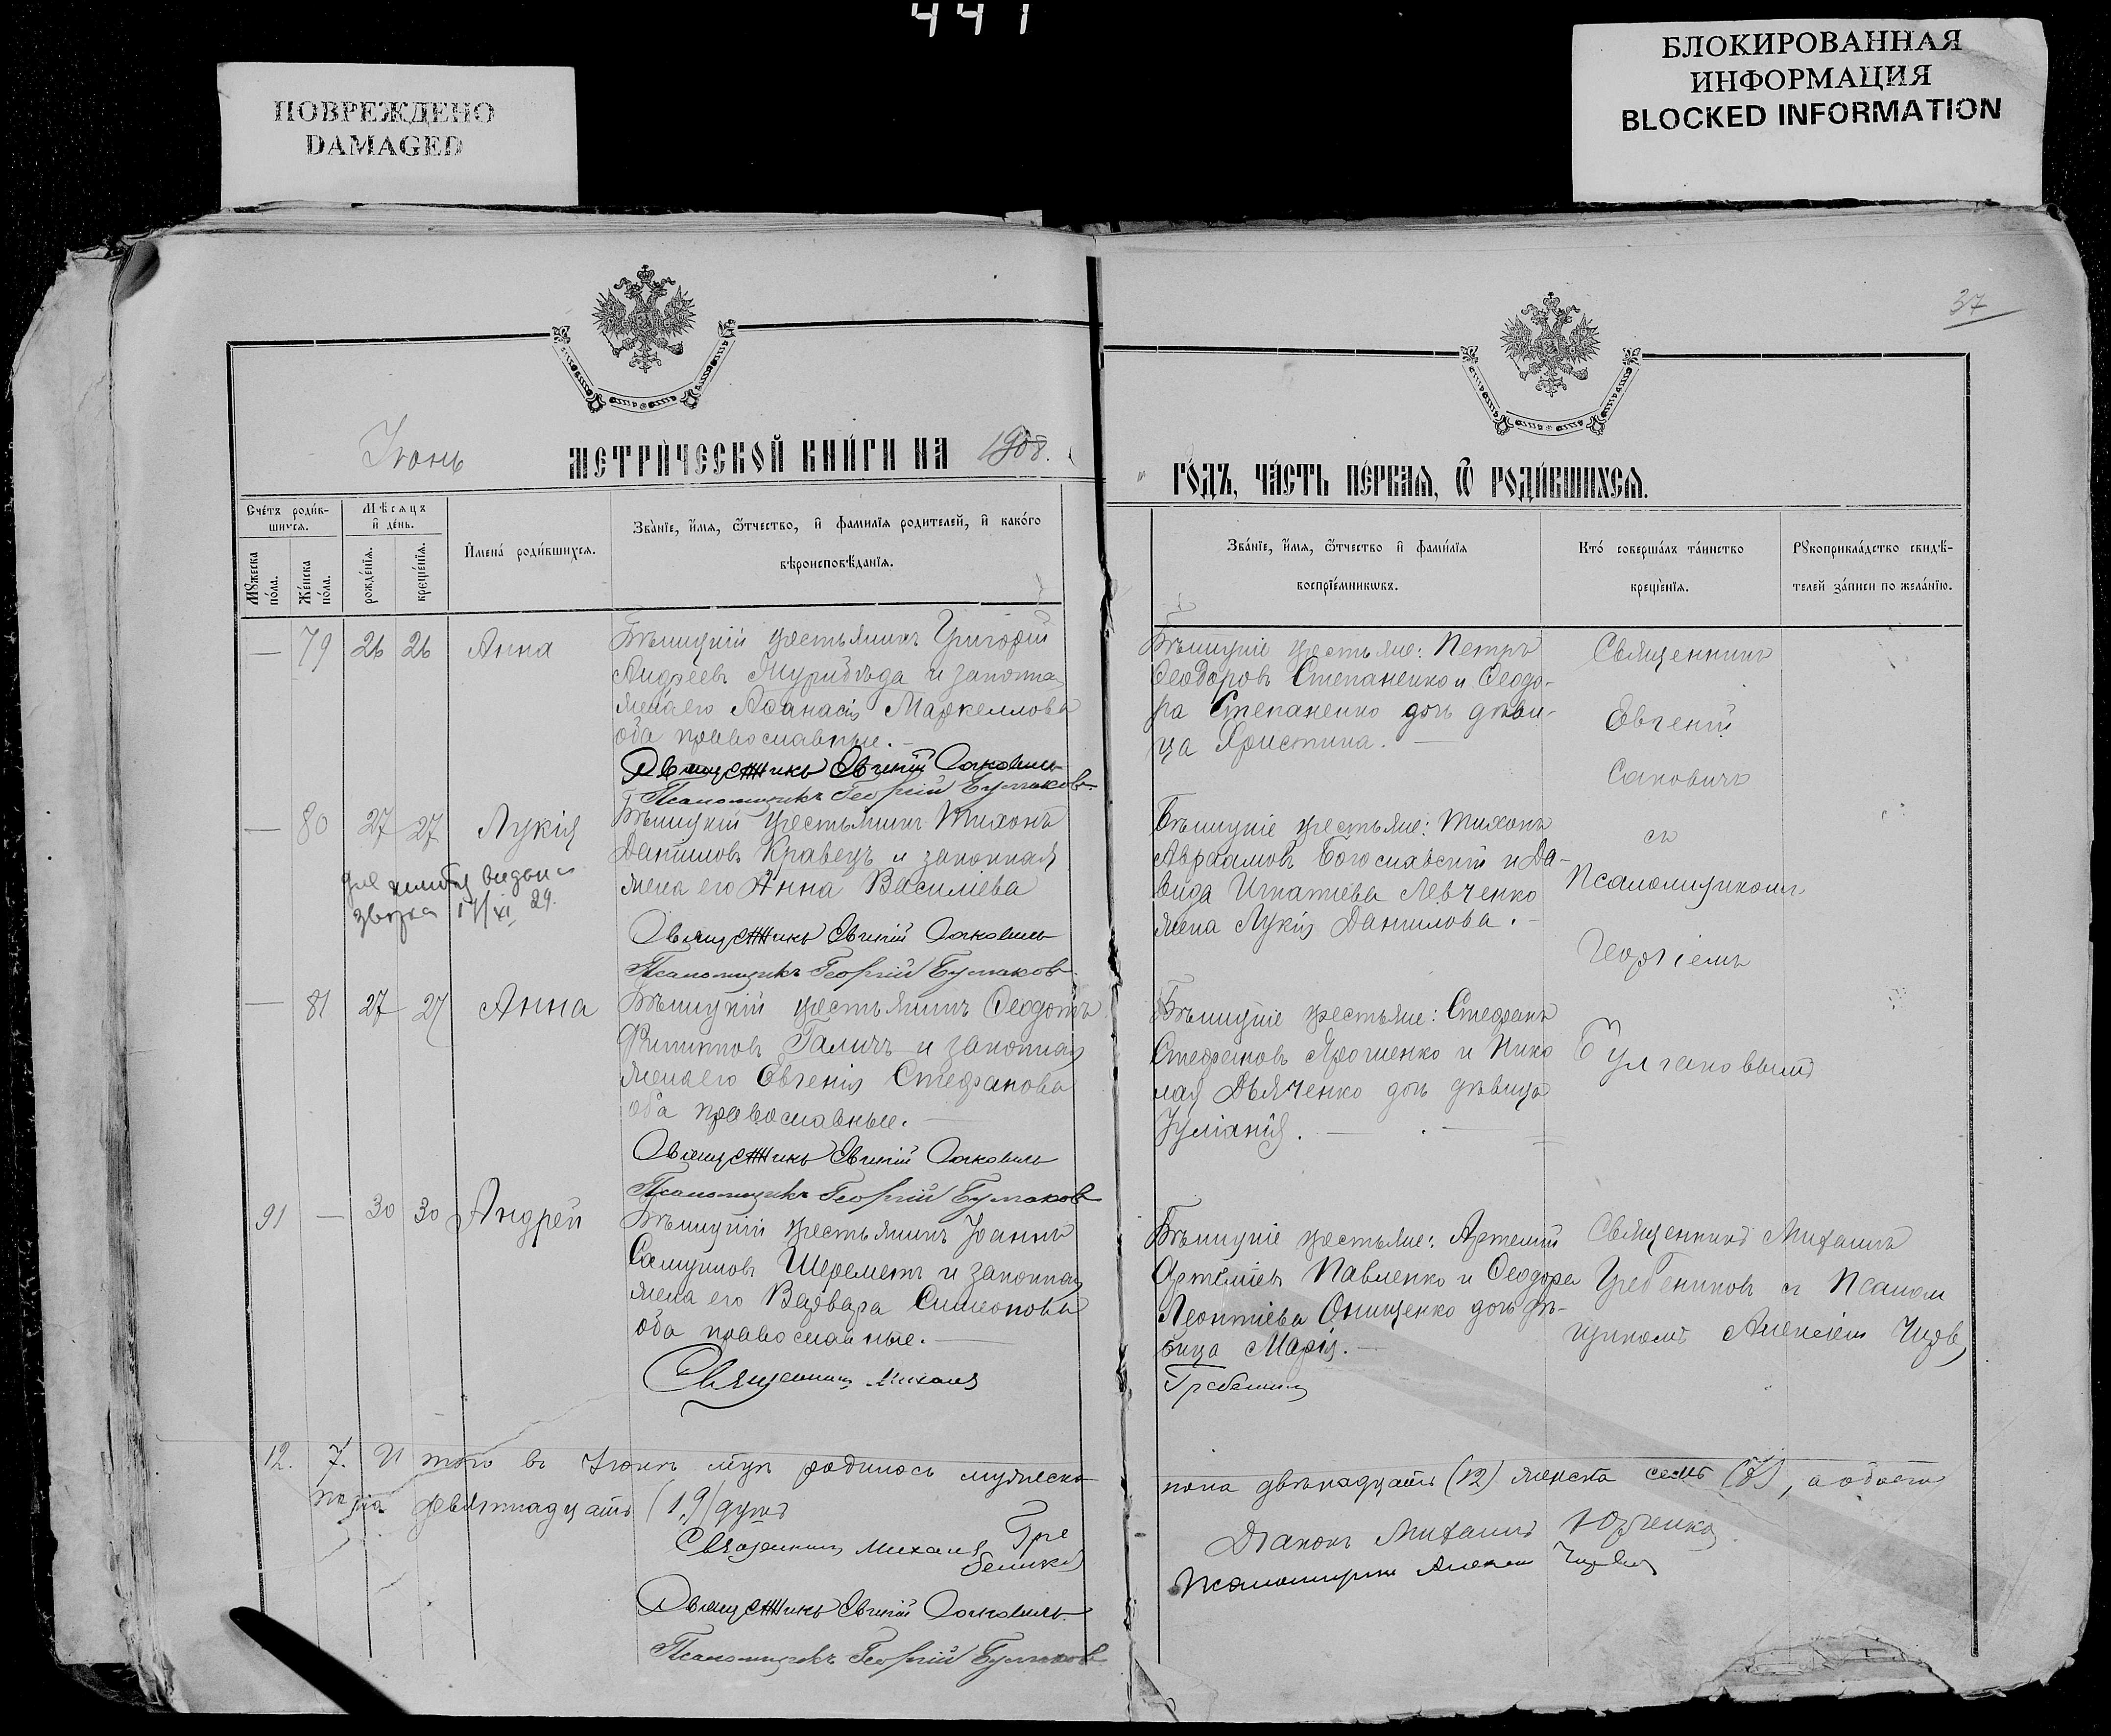 441
ПОВРЕЖДЕНО
DAMAGED
БЛОКИРОВАННАЯ
ИНФОРМАЦИЯ
BLOCKED INFORMATION
37
Іюнь
МЕТРИ́ЧЕСКОЙ КНИ́ГИ НА 1908.
ГО́ДЪ, ЧА́СТЬ ПЕ́РВАЯ, Ѿ РОДИ́ВШИХСЯ.
Сче́тъ роди́в-
шихся.
Мꙋ́жеска по́ла.
Же́нска по́ла.
Мѣ́сяцъ
и҆ де́нь.
рожде́нїя.
креще́нїя.
И҆мена́ роди́вшихся.
Зва́нїе, и҆́мя, ѻ҆́тчество, и҆ фами́лїя роди́телей, и҆ како́го
вѣроисповѣ́данїя.
Зва́нїе, и҆́мя, ѻ҆́тчество и҆ фами́лїя
воспрїе́мникѡвъ.
Кто́ соверша́лъ та́инство
креще́нїя.
Рꙋкоприкла́дство свидѣ́-
телей за́писи по жела́нїю.
— 79 26 26 Анна
крестьянинъ Григорій
Андреевъ и законная
жена его Аѳанасія Маркеллова
оба православные. —
Священникъ Евгеній Саковичъ
Псаломщикъ Георгій Булгаковъ
крестьяне: Петръ
Ѳеодоровъ Степаненко и Ѳеодо-
ра Степаненко дочь дѣви-
ца Христина. —
Священникъ
Евгеній
Саковичъ
съ
Псаломщикомъ
Георгіемъ
Булгаковымъ
— 80 27 27 Лукія
17/XI 29.
крестьянинъ Тихонъ
Даниловъ Кравецъ и законная
жена его Анна Василіева
Священникъ Евгеній Саковичъ
Псаломщикъ Георгій Булгаковъ
крестьяне: Тихонъ
Авраамовъ Богославскій и Да-
вида Игнатіева Левченко
жена Лукія Данилова. —
— 81 27 27 Анна
крестьянинъ Ѳеодотъ
Филипповъ Галичъ и законная
жена его Евгенія Стефанова
оба православные. —
Священникъ Евгеній Саковичъ
Псаломщикъ Георгій Булгаковъ
крестьяне: Стефанъ
Стефановъ Ярошенко и Нико
лая Дьяченко дочь дѣвица
Іуліанія. —
91 — 30 30 Андрей
крестьянинъ Іоаннъ
Самуиловъ Шереметъ и законная
жена его Варвара Симеонова
оба православные. —
Священникъ Михаилъ
Гребениковъ
крестьяне: Артемій
Артеміевъ Павленко и Ѳеодора
Леонтіева Онищенко дочь дѣ-
вица Марія. —
Священникъ Михаилъ
Гребениковъ съ Псалом
щикомъ Алексіемъ
12. 7. Итого въ Іюнѣ мцѣ родилось мужеска
пола двѣнадцать (12) женска семь (7), а обоего
пола девятнадцать (19) душъ
Священникъ Михаилъ Гре
бениковъ
Діаконъ Михаилъ Юрченко
Псаломщикъ Алексій
Священникъ Евгеній Саковичъ
Псаломщикъ Георгій Булгаковъ